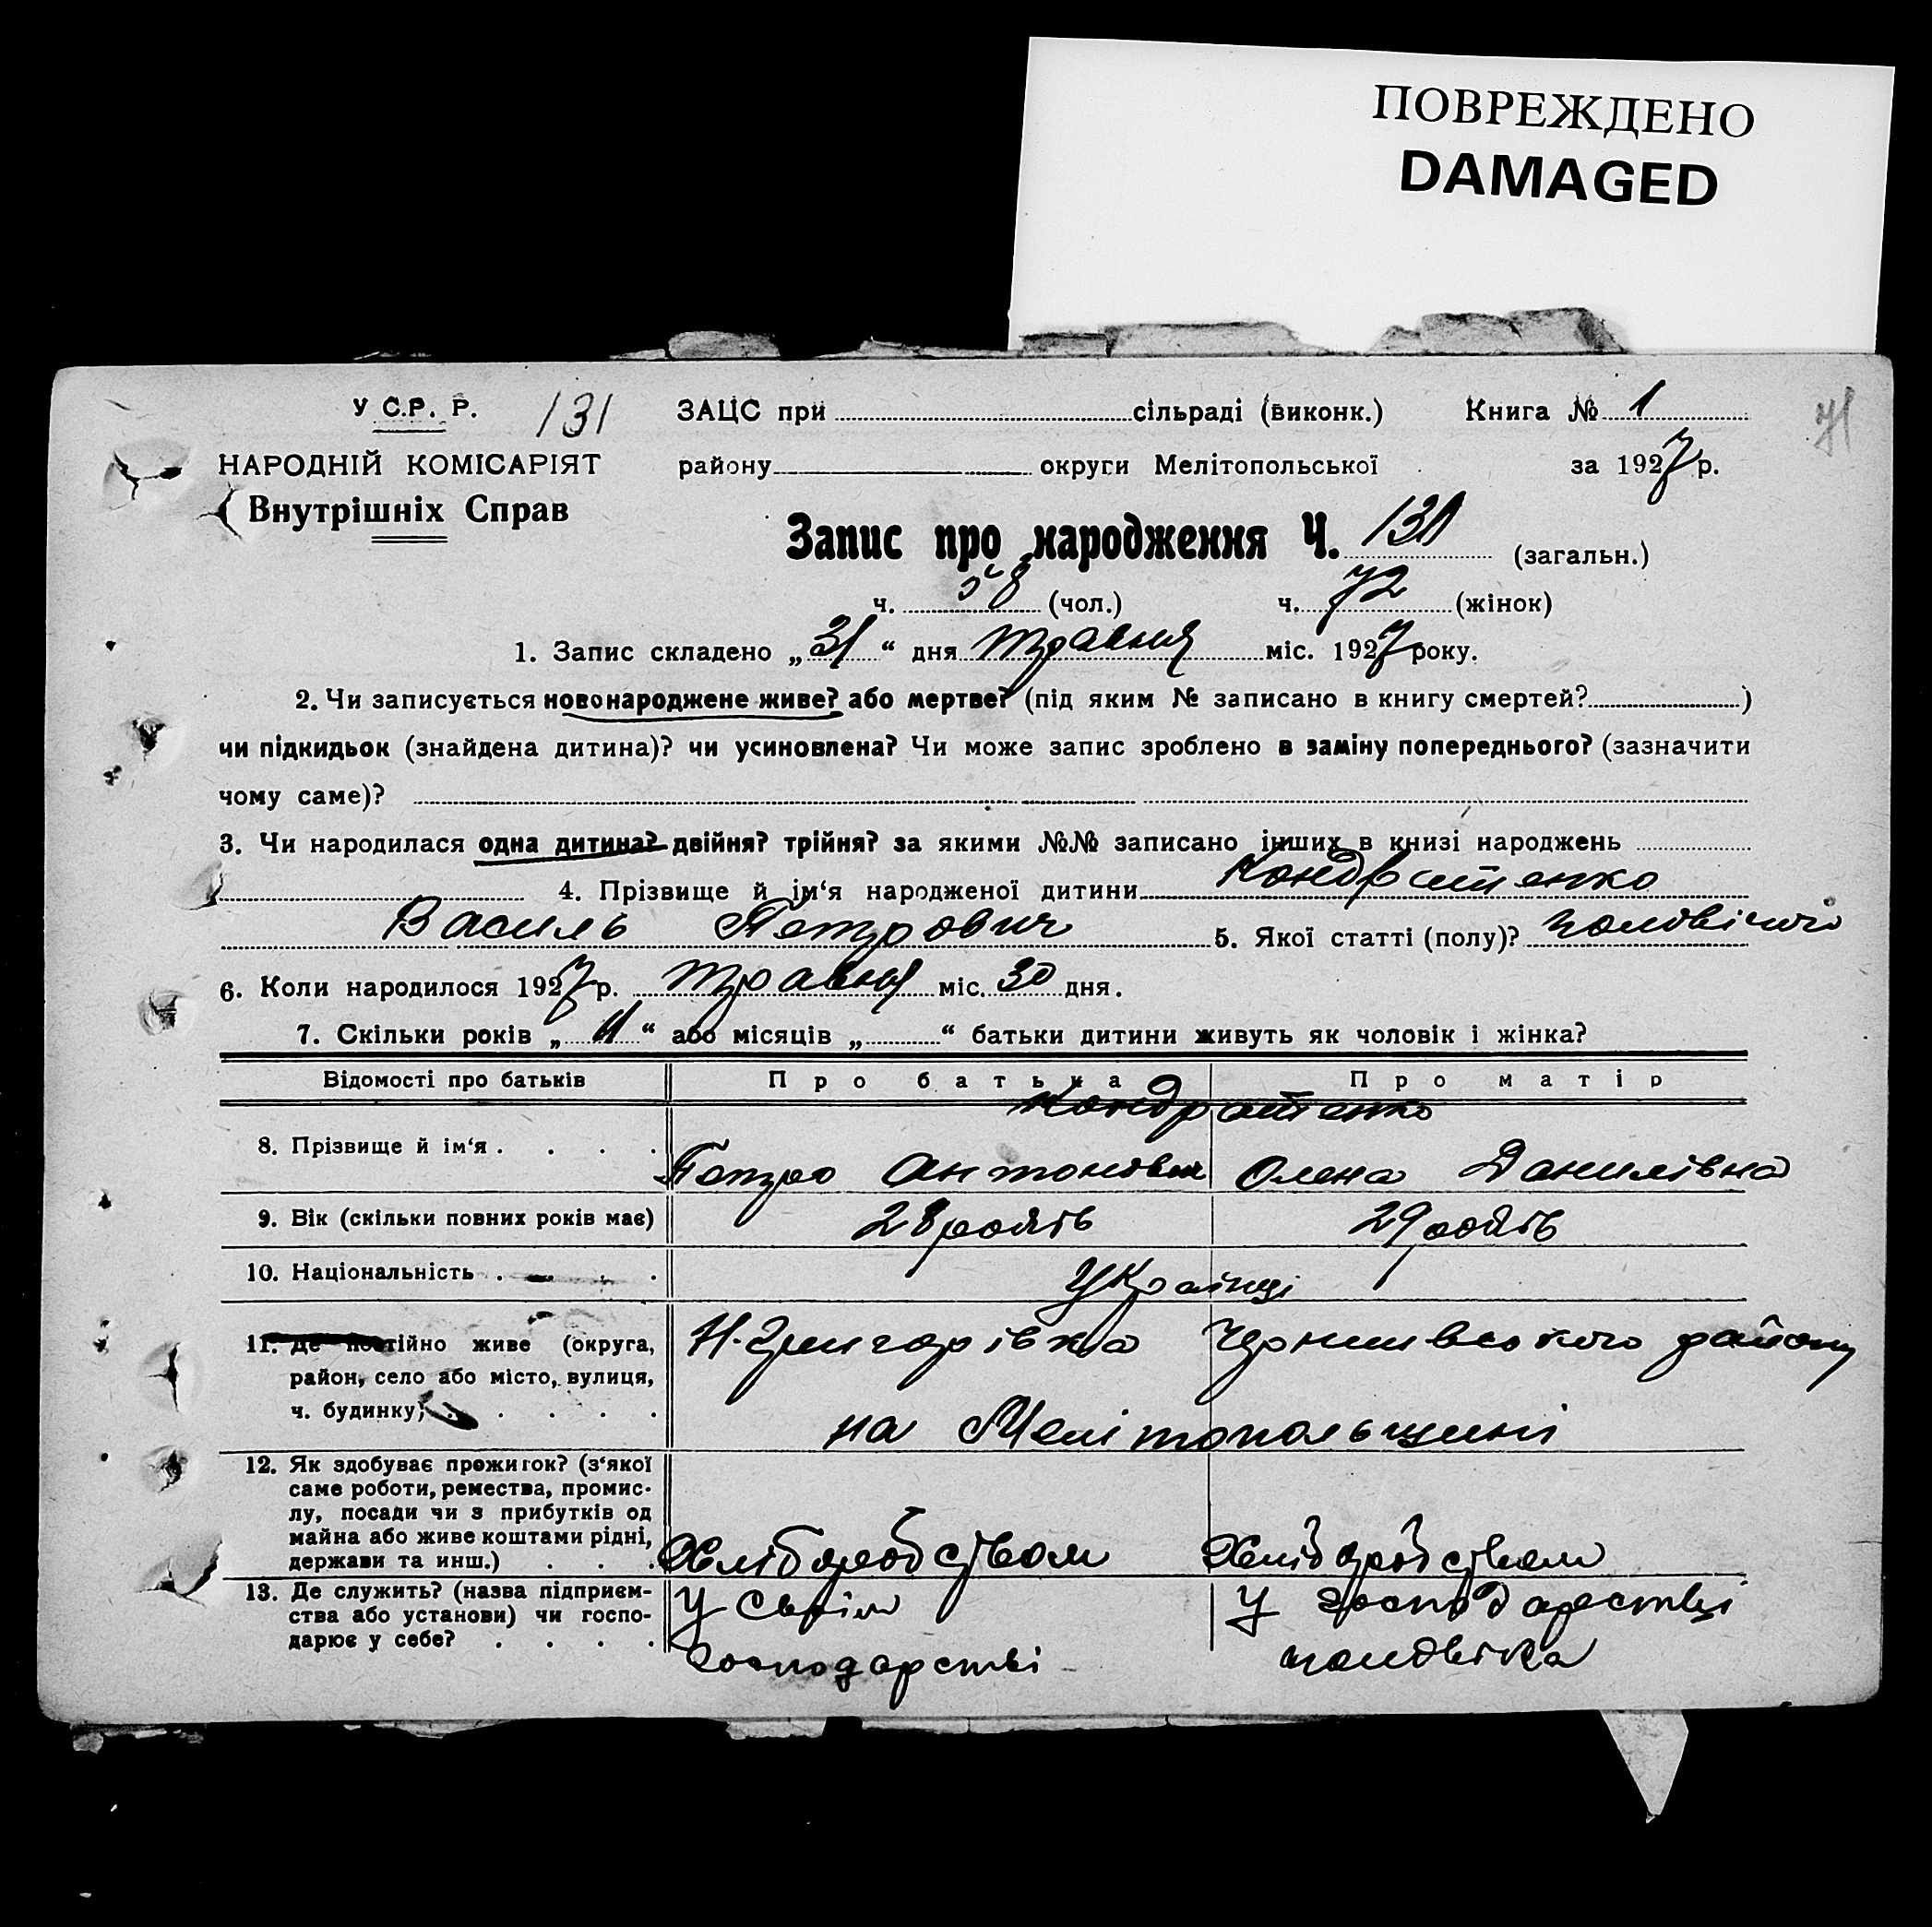 ПОВРЕЖДЕНО
DAMAGED
У С.Р. Р. 131 ЗАЦС при сільраді (виконк.) Книга № 1 71
НАРОДНІЙ КОМІСАРІЯТ району округи Мелітопольської за 1927 р.
Внутрішніх Справ
Запис про народження Ч. 131 (загальн.)
ч. 58 (чол.) ч. 72 (жінок)
1. Запис складено „ 31 “ дня травня міс. 1927 року.
2. Чи записується новонароджене живе? або мертве? (під яким № записано в книгу смертей? )
чи підкидьок (знайдена дитина)? чи усиновлена? Чи може запис зроблено в заміну попереднього? (зазначити
чому саме)?
3. Чи народилася одна дитина? двійня? трійня? за якими №№ записано інших в книзі народжень
4. Прізвище й ім‘я народженої дитини Кондратенко
Василь Петрович 5. Якої статті (полу)? чоловічого
6. Коли народилося 1927 р. травня міс. 30 дня.
7. Скільки років „ “ або місяців „ “ батьки дитини живуть як чоловік і жінка?
Відомості про батьків Про батька Про матір
Кондратенко
8. Прізвище й ім‘я . . . . Петро Антонович Олена Данилівна
9. Вік (скільки повних років має) 28 років 29 років
10. Національність . . . . Українці
11. Де постійно живе (округа, Н-Григорівка Чернигівського району
район, село або місто, вулиця,
ч. будинку) . . . . . на Мелітопольщині
12. Як здобуває прожиток? (з‘якої
саме роботи, ремества, промис-
лу, посади чи з прибутків од
майна або живе коштами рідні,
держави та инш.) . . . Хліборобством Хліборобством
13. Де служить? (назва підприєм- У своїм У господарстві
ства або установи) чи госпо-
дарює у себе? . . . . господарстві чоловіка